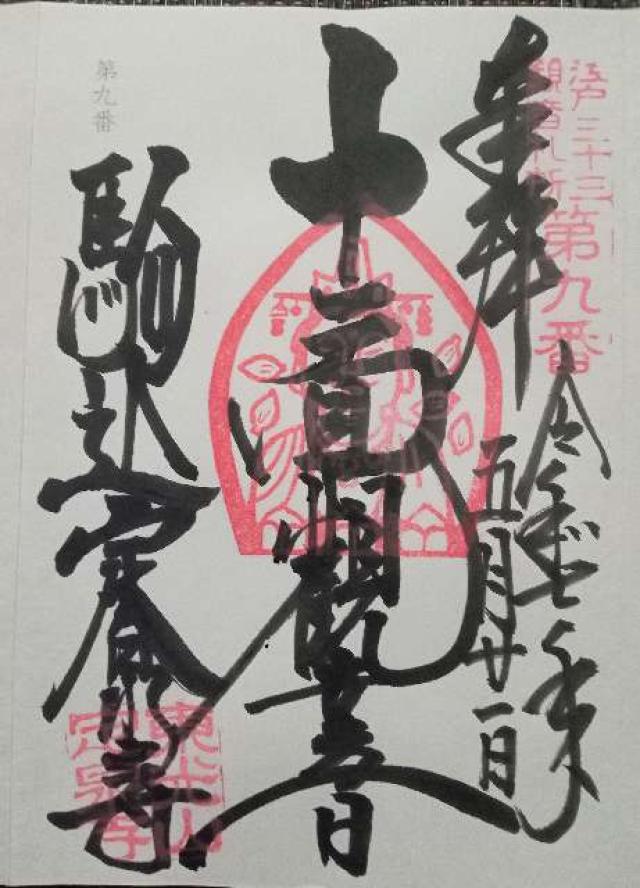 江戸三十三
観音札所第九番
奉拝
令和
五月廿一日
十一面観世音
第九番
駒込定泉寺
東光山
定泉寺